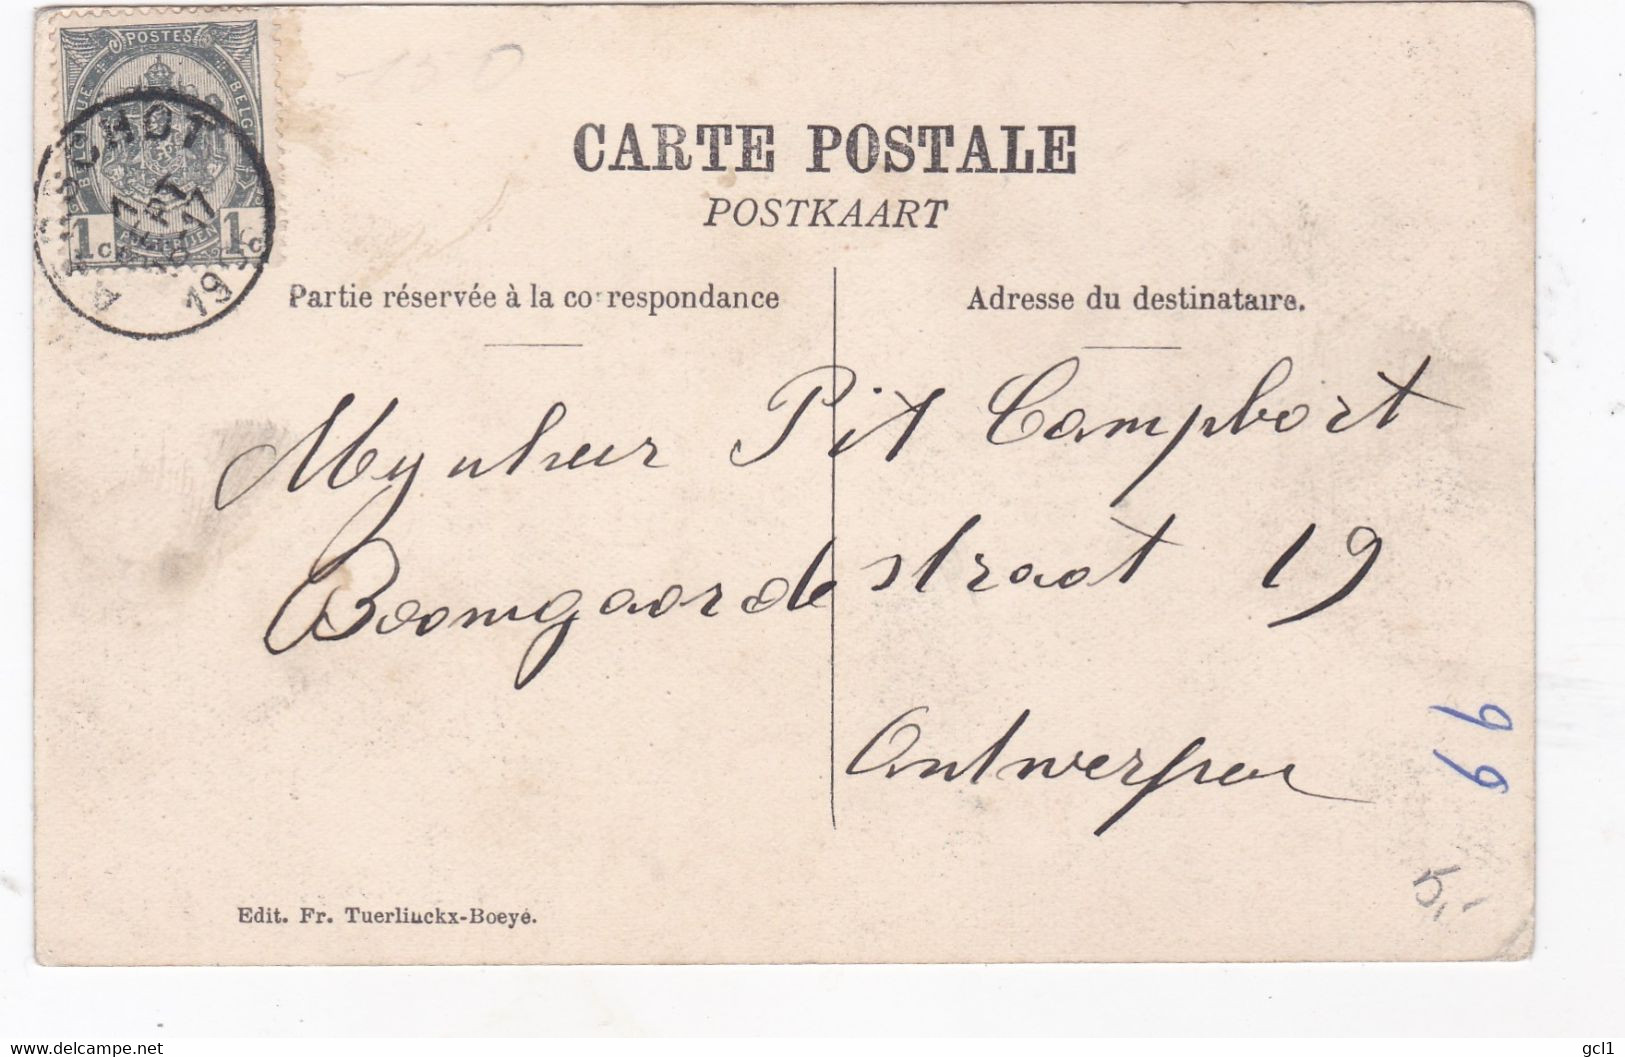 POSTES
BELGIQUE
BELGIË
1c 1c
150
CARTE POSTALE
POSTKAART
Partie réservée à la correspondance
Adresse du destinataire.
Mynheer Pit Campbort
Boomgaardestraat 19
Antwerpen
99
5,-
Edit. Fr. Tuerlinckx-Boeyé.
delcampe.com
gcl1